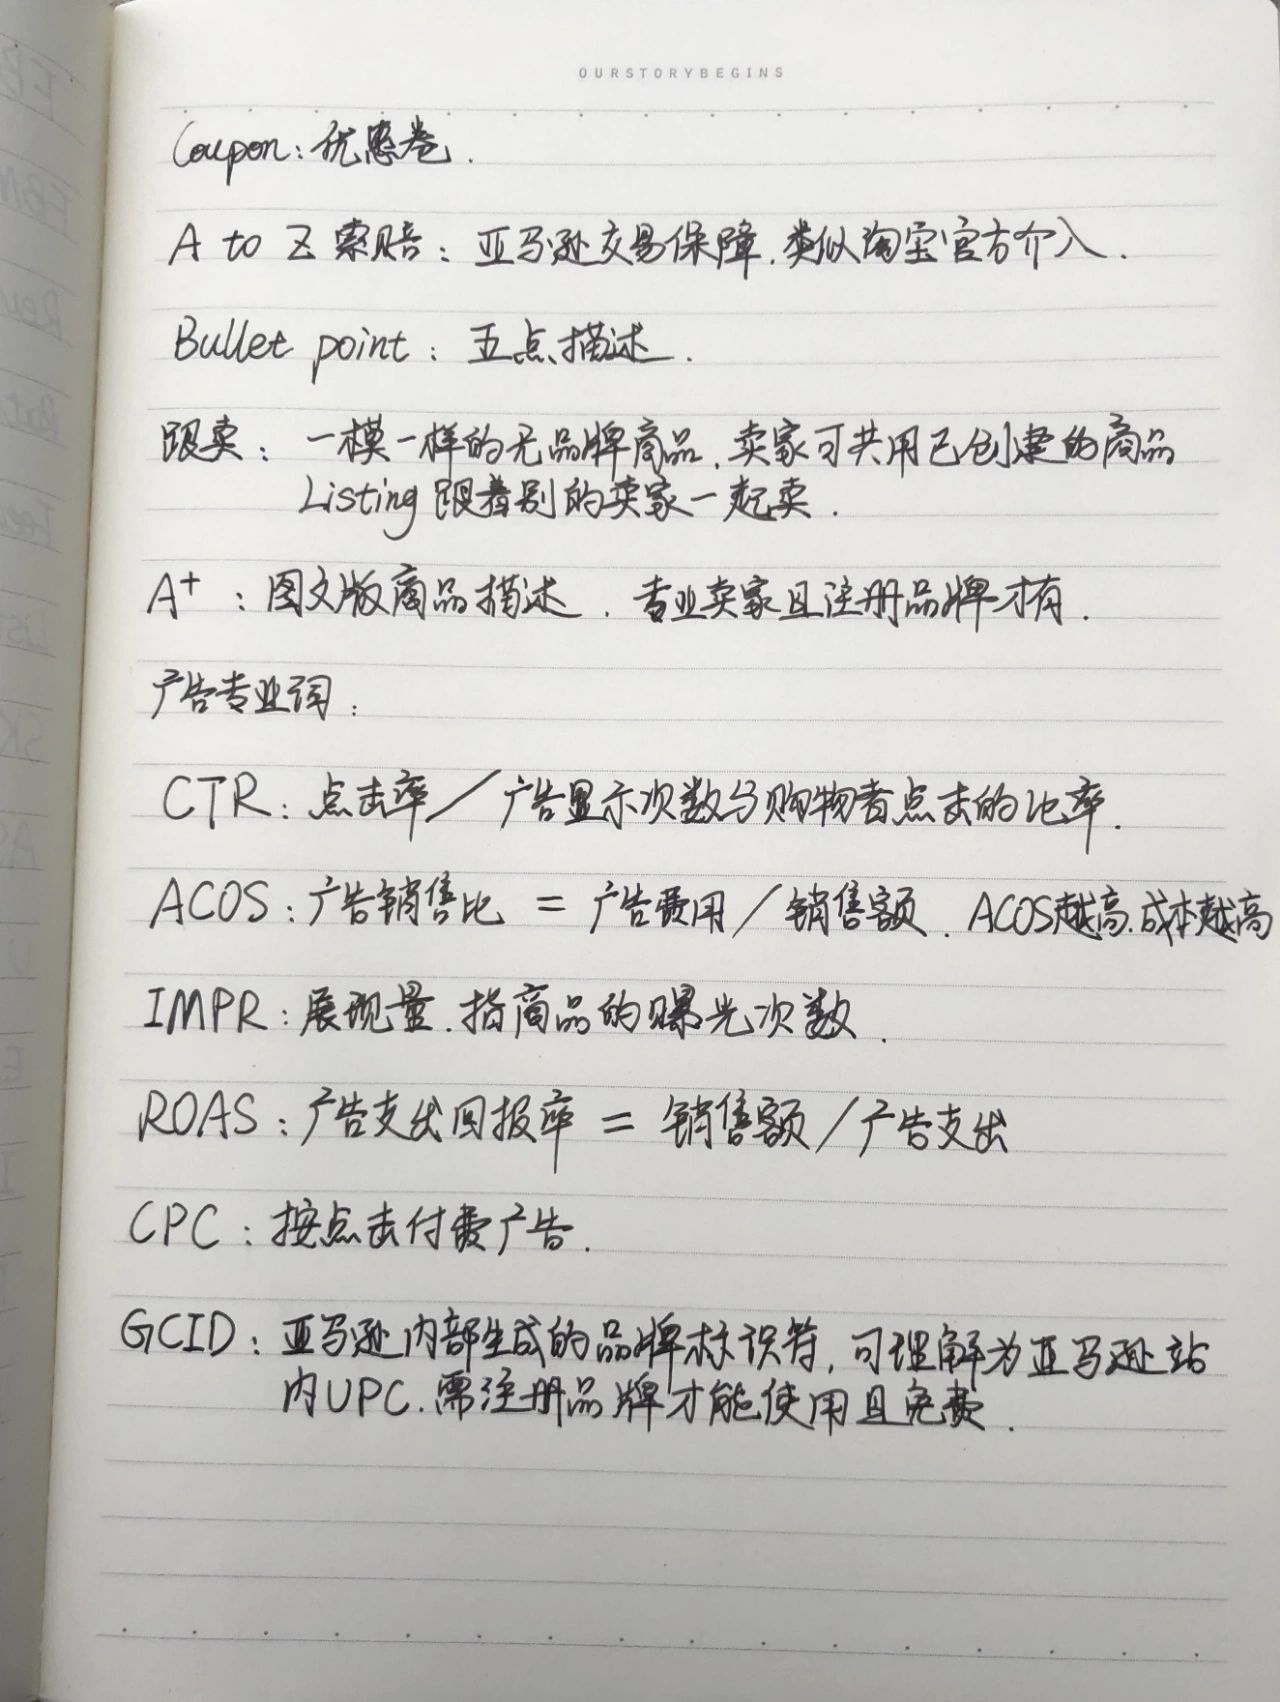 OURSTORYBEGINS
Coupon：优惠卷.
A to Z 索赔：亚马逊交易保障.类似淘宝官方介入.
Bullet point：五点描述.
跟卖：一模一样的无品牌商品.卖家可共用已创建的商品
Listing 跟着别的卖家一起卖.
A+：图文版商品描述.专业卖家且注册品牌才有.
广告专业词：
CTR：点击率／广告显示次数与购物者点击的比率.
ACOS：广告销售比 = 广告费用／销售额.ACOS越高.成本越高
IMPR：展现量.指商品的曝光次数.
ROAS：广告支出回报率 = 销售额／广告支出
CPC：按点击付费广告.
GCID：亚马逊内部生成的品牌标识符,可理解为亚马逊站
内UPC.需注册品牌才能使用且免费.